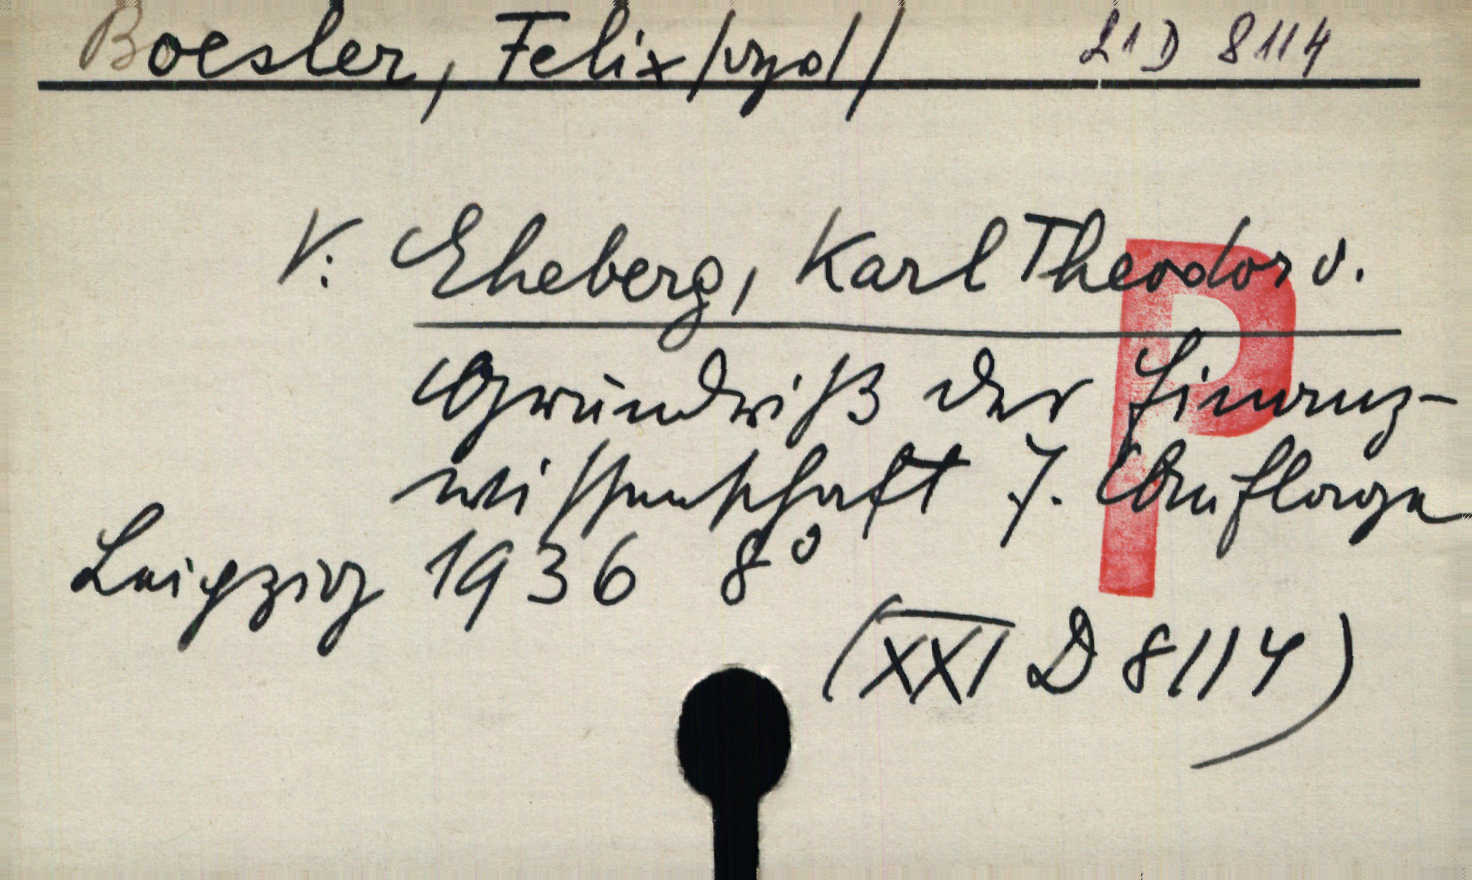 Boesler, Felix /vgl/ 21 D 8114
V: Eheberg, Karl Theodor v.
Grundriß der Finanz-
wissenschaft 7. Auflage
Leipzig 1936 8°
(XXI D 8114)
P